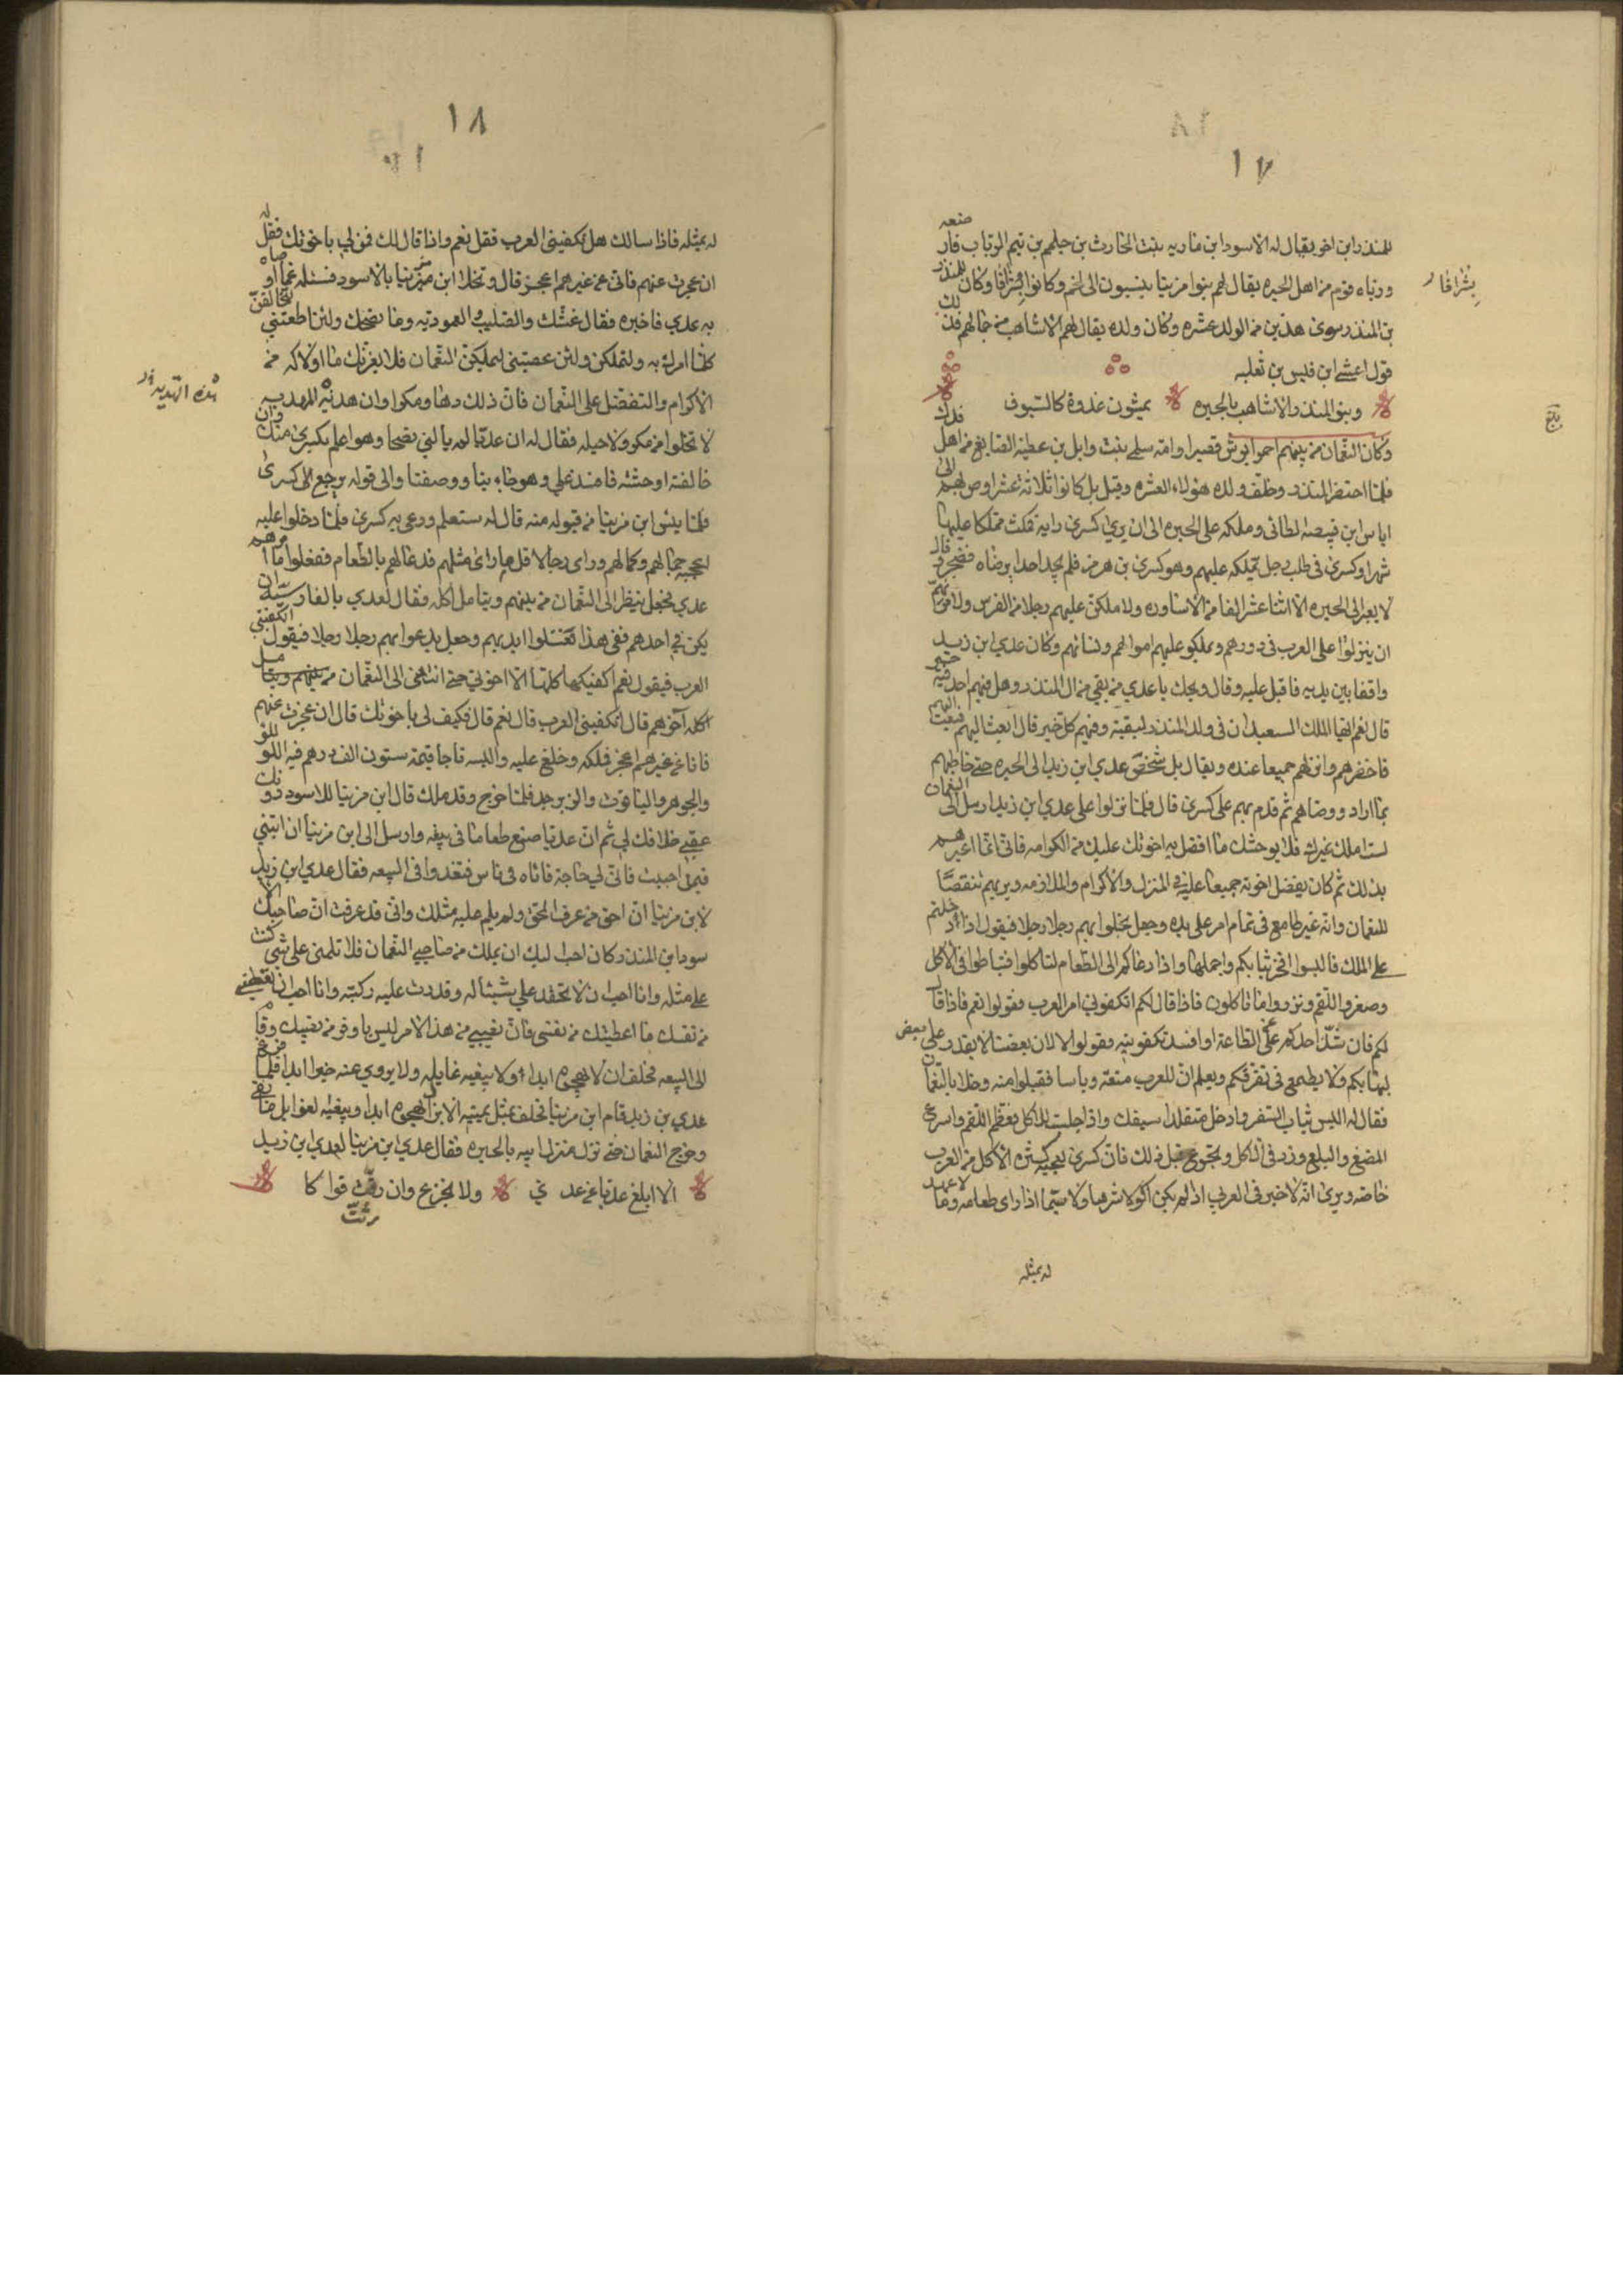 ١٧
للمنذر ابن اخر يقال له الاسود ابن ماريه بنت الحارث بن جلهم بن تيم الرباب فارضعه
ورباه قوم من اهل الحيره يقال لهم بنوا مزينا ينسبون الى لخم وكانوا اشرافا وكان للمنذر
بن المنذر سوى هذين من الولد عشره وكان ولده يقال لهم الاشاهب من جمالهم فذلك
قول اعشى ابن قيس بن ثعلبه
وبنو المنذر الاشاهب بالحيره يمشون غدوة كالسيوف
وكان النعمان من بينهم احمر ابرش قصيرا وامه سلمى بنت وايل بن عطيه الصايغ من اهل فدك
فلما احتضر المنذر وخلف ولده هؤلاء العشره وقيل بل كانوا ثلاثة عشر اوصى بهم الى
اياس ابن قبيصه الطائى وملكه على الحيره الى ان يرى كسرى رايه فمكث مملكا عليها
شهرا وكسرى فى طلب رجل يملكه عليهم وهو كسرى بن هرمز فلم يجد احدا يرضاه فضجر وقال
لابعثن الى الحيره اثنا عشر الفا من الاساوره ولاملكن عليهم رجلا من الفرس ولامرنهم
ان ينزلوا على العرب فى دورهم ويملكو عليهم اموالهم ونسائهم وكان عدي ابن زيد
واقفا بين يديه فاقبل عليه وقال ويحك يا عدي من بقي من ال المنذر وهل فيهم احد فيه خير
قال نعم ايها الملك السعيد ان فى ولد المنذر لبقية وفيهم كل خير قال ابعث اليهم فبعث اليهم
فاحضرهم وانزلهم جميعا عنده ويقال بل شخص عدي ابن زيد الى الحيره حتى خاطبهم
بما اراد ووصاهم ثم قدم بهم على كسرى قال فلما نزلوا على عدي ابن زيد ارسل الى النعمان
لست املك غيرك فلا يوحشك ما افضل به اخوتك عليك من الكرامه فانى انما اغيرهم
بذلك ثم كان يفضل اخوته جميعا عليه فى المنزل والاكرام والملازمه ويريهم تنقصا
للنعمان وانه غير طامع فى تمام امر على يده وجعل يخلوا بهم رجلا رجلا فيقول اذا ادخلتم
على الملك فالبسوا افخر ثيابكم واجملها واذا دعا لكم الى الطعام لتاكلوا فتباطوا فى الاكل
وصغروا اللقم ونزروا ما تاكلون فاذا قال لكم اتكفونى امر العرب فقولوا نعم فاذا قال
لكم فان شذ احدكم عن الطاعة او افسد تكفونيه فقولوا لا لان بعضنا لا يقدر على بعض
ليهابكم ولا يطمع فى تفرقكم ويعلم ان للعرب منعة وباسا فقبلوا منه وخلا بالنعمان
فقال له البس ثياب السفر وادخل متقلدا سيفك واذا جلست للاكل فعظم اللقم واسرع
المضغ والبلع وزد فى الاكل وتجوع قبل ذلك فان كسرى يعجبه كثره الاكل من العرب
خاصه ويرى انه لا خير فى العربي اذا لم يكن اكولا شرها ولا سيما اذا راى طعامه وما لا عهد
له بمثله
بشرافار
١٨
له بمثله فاذا سالك هل تكفينى العرب فقل نعم واذا قال لك فمن لي باخوتك فقل له
ان عجزت عنهم فانى عن غيرهم اعجز قال وخلا ابن مزينا بالاسود فسئله عما اوصاه
به عدي فاخبره فقال غشك والصليب والمعموديه وما نصحك ولئن اطعتني لتخالفن
كلما امرك به ولتملكن ولئن عصيتني ليملكن النعمان فلا يغرنك ما اولاكه من
الاكرام والتفضل على النعمان فان ذلك دهاء ومكرا وان هذه المعديه
لا تخلوا من مكر ولا حيله فقال له ان عديا لم يالني نصحا وهو اعلم بكسرى منك وان
خالفته اوحشته فافسد علي وهو جاء بنا ووصفنا والى قوله يرجع الى كسرى
فلما يئس ابن مزينا من قبوله منه قال له ستعلم ودعى به كسرى فلما دخلوا عليه
اعجبه جمالهم وكمالهم وراى رجالا قل ما راى مثلهم فدعا لهم بالطعام ففعلوا ما امرهم
عدي فجعل ينظر الى النعمان من بينهم ويتامل اكله فقال لعدي بالفارسيه ان
يكن في احدهم ففى هذا فغسلوا ايديهم وجعل يدعوا بهم رجلا رجلا فيقول اتكفنني
العرب فيقول نعم اكفيكها كلها الا اخوتي حتى انتهى الى النعمان من بينهم
اكله اخرهم قال اتكفينى العرب قال نعم قال فكيف لى باخوتك قال ان عجزت عنهم
فانا عن غيرهم اعجز فملكه وخلع عليه والبسه تاجا قيمته ستون الف درهم فيه اللولو
والجوهر والياقوت والزبرجد فلما خرج وقد ملك قال ابن مزينا للاسود دونك
عقبى خلافك لي ثم ان عديا صنع طعاما فى بيعه وارسل الى ابن مزينا ان ائتني
فيمن احببت فان لي حاجة فاتاه فى ناس فتغدوا فى البيعه فقال عدي ابن زيد
لابن مزينا ان احق من عرف الحق ولم يلم عليه مثلك وانى قد عرفت ان صاحبك الا
سود ابن المنذر كان احب اليك ان يملك من صاحبي النعمان فلا تلمنى على شي كنت
على مثله وانا احب ان لا تحقد علي شيئا له وقدرت عليه ركبته وانا احب ان تعطيني
من نفسك ما اعطيتك من نفسى فان نصيبي من هذا الامر ليس باوفر من نصيبك وقام
الى البيعه فحلف ان لا يهجوه ابدا ولا يبغيه غايله ولا يروي عنه خيرا ابدا فلما فرغ
عدي بن زيد قام ابن مزينا فحلف بمثل يمينه لا يزال يهجوه ابدا ويبغيه الغوايل ما بقى
وخرج النعمان حتى نزل منزل ابيه بالحيره فقال عدي ابن مزينا لعدي ابن زيد
الا ابلغ عديا عن عدي ولا تجزع وان رثت قواكا
رثت